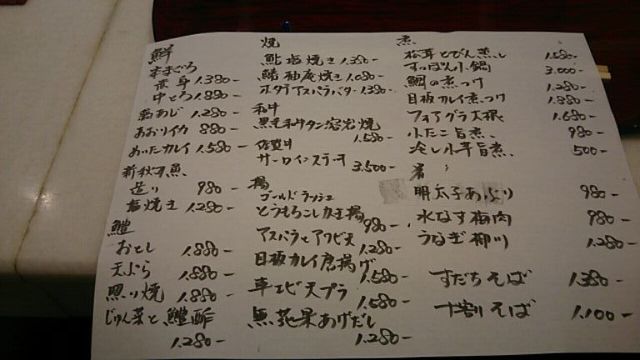 鮮
本まぐろ
赤身 1.380-
中とろ 1.880-
島あじ 1.280-
あおりイカ 880-
めいたカレイ 1.580-
新秋刀魚
造り 980-
塩焼き 1.280-
鱧
おとし 1.880-
天ぷら 1.880-
照り焼 1.880-
じゅん菜と鱧酢
1.280-
焼
鮎塩焼き 1.380-
鯖柚庵焼き 1.080-
ホタテアスパラバター 1.380-
和牛
黒毛和牛タン溶岩焼
1.580-
佐賀牛
サーロインステーキ
3.500-
揚
ゴールドラッシュ
とうもろこしかき揚
980-
アスパラとアワビ天
1.280-
目板カレイ唐揚げ
1.580-
車エビ天プラ
1.580-
無花果あげだし
1.280-
煮
松茸とびん蒸し 1.580-
すっぽん小鍋 3.000-
鯛の煮つけ 1.280-
目板カレイ煮つけ 1.880-
フォアグラ大根 1.680-
小たこ旨煮 980-
冷し小芋旨煮 500-
肴
明太子あぶり 980-
水なす梅肉 980-
うなぎ柳川 1.280-
すだちそば 1.380-
十割そば 1.100-